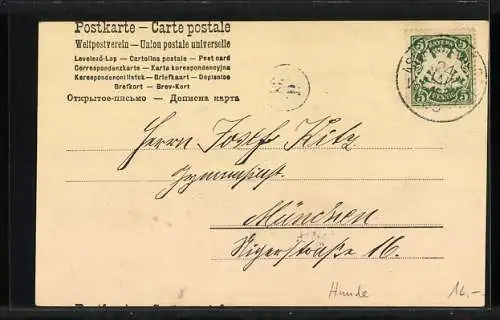 Postkarte — Carte postale
Weltpostverein — Union postale universelle
Levelező-Lap — Cartolina postale — Post card
Correspondenzkarte — Karta korespondencyjna
Korespondenční lístek — Briefkaart — Dopisnice
Brefkort — Brev-Kort
Открытое-письмо — Дописна карта
BAYERN
5 5
PFENNIG
Herrn Josef Kitz
Gymnasiast.
München
Nigerstraße 16.
Hunde
12.-